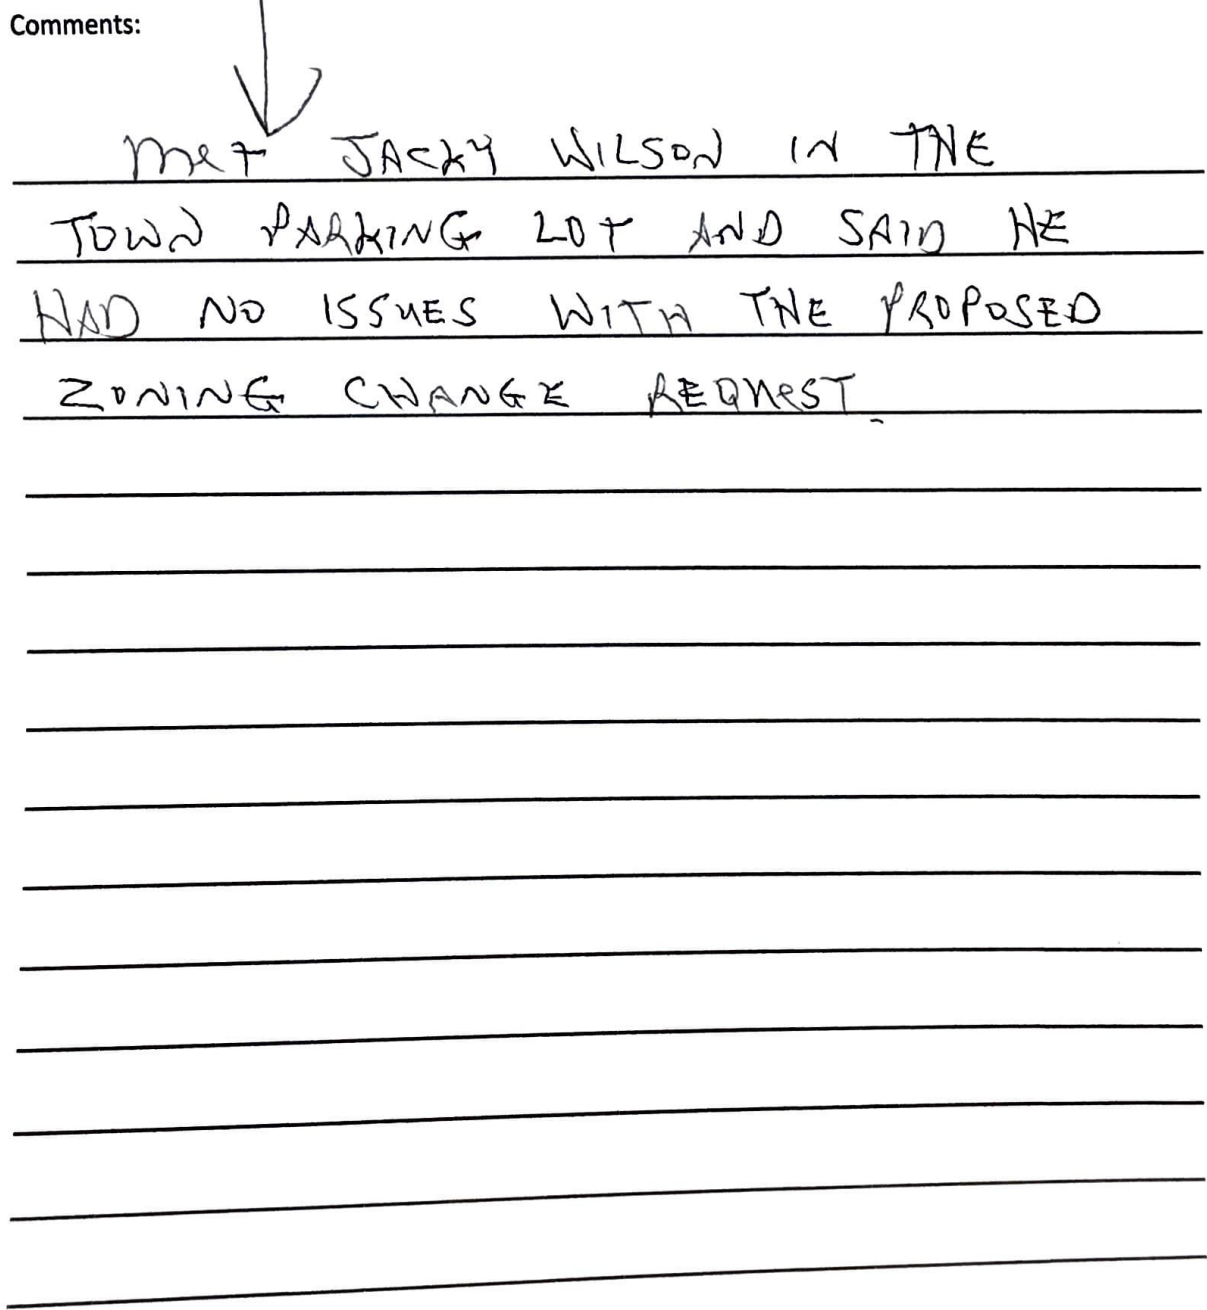 Comments:
Met JACKY WILSON IN THE
TOWN PARKING LOT AND SAID HE
HAD NO ISSUES WITH THE PROPOSED
ZONING CHANGE REQUEST.